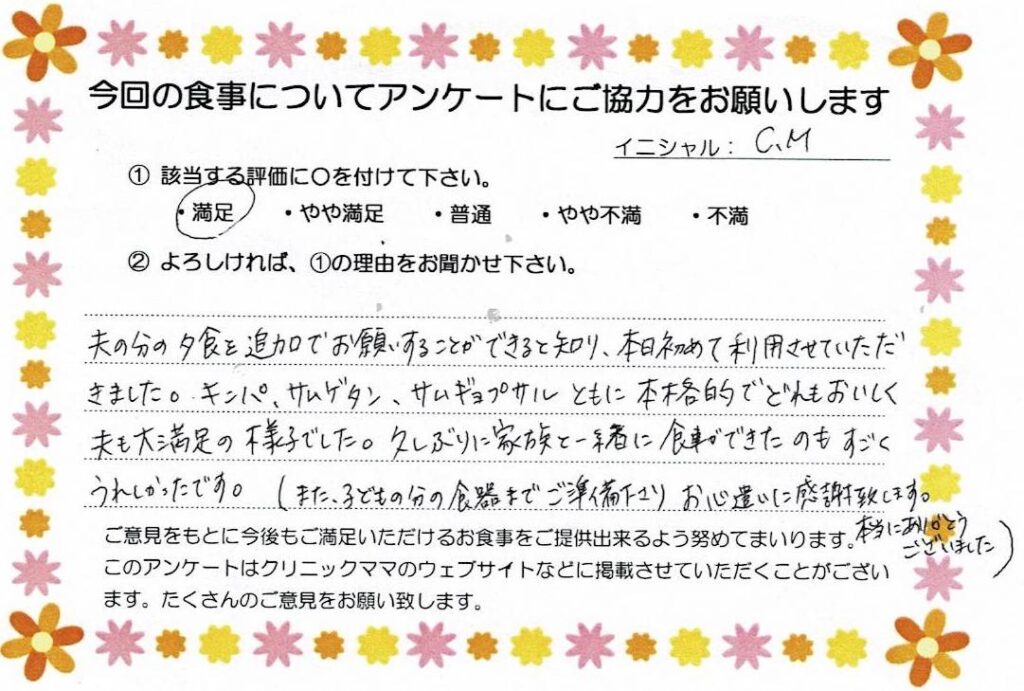 今回の食事についてアンケートにご協力をお願いします
イニシャル： C.M
① 該当する評価に〇を付けて下さい。
・満足 ・やや満足 ・普通 ・やや不満 ・不満
② よろしければ、①の理由をお聞かせ下さい。
夫の分の夕食を追加でお願いすることができると知り、本日初めて利用させていただ
きました。キンパ、サムゲタン、サムギョプサル ともに 本格的でどれもおいしく
夫も大満足の様子でした。久しぶりに家族と一緒に食事ができたのもすごく
うれしかったです。 （また、子どもの分の食器までご準備下さり お心遣いに感謝致します。
本当にありがとう
ございました）
ご意見をもとに今後もご満足いただけるお食事をご提供出来るよう努めてまいります。
このアンケートはクリニックママのウェブサイトなどに掲載させていただくことがござい
ます。たくさんのご意見をお願い致します。